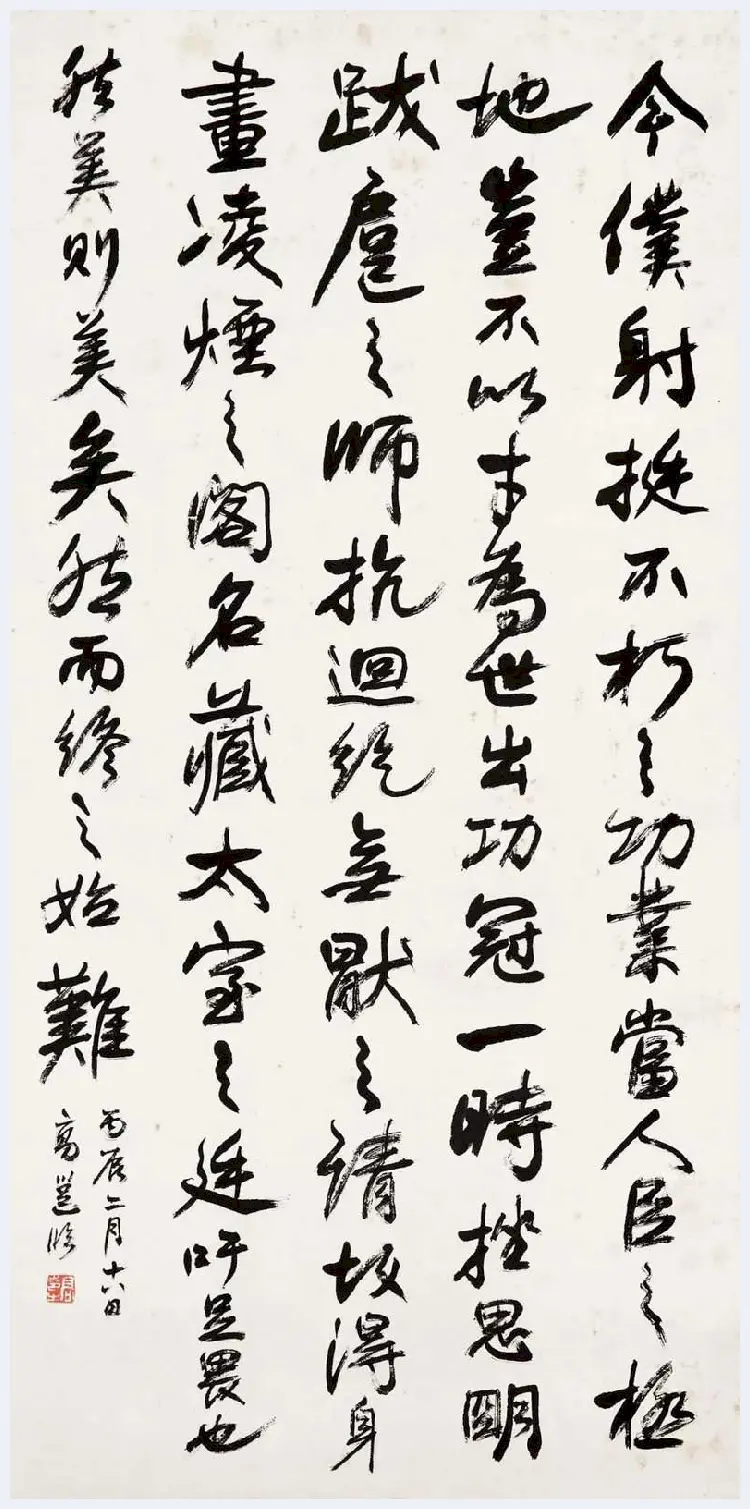 今僕射挺不朽之功業當人臣之極
地豈不以才為世出功冠一時挫思明
跋扈之師抗迴紇無猒之請故得身
畫凌煙之閣名藏太室之廷吁足畏也
然美則美矣然而終之始難
丙辰二月十六日
高邕臨